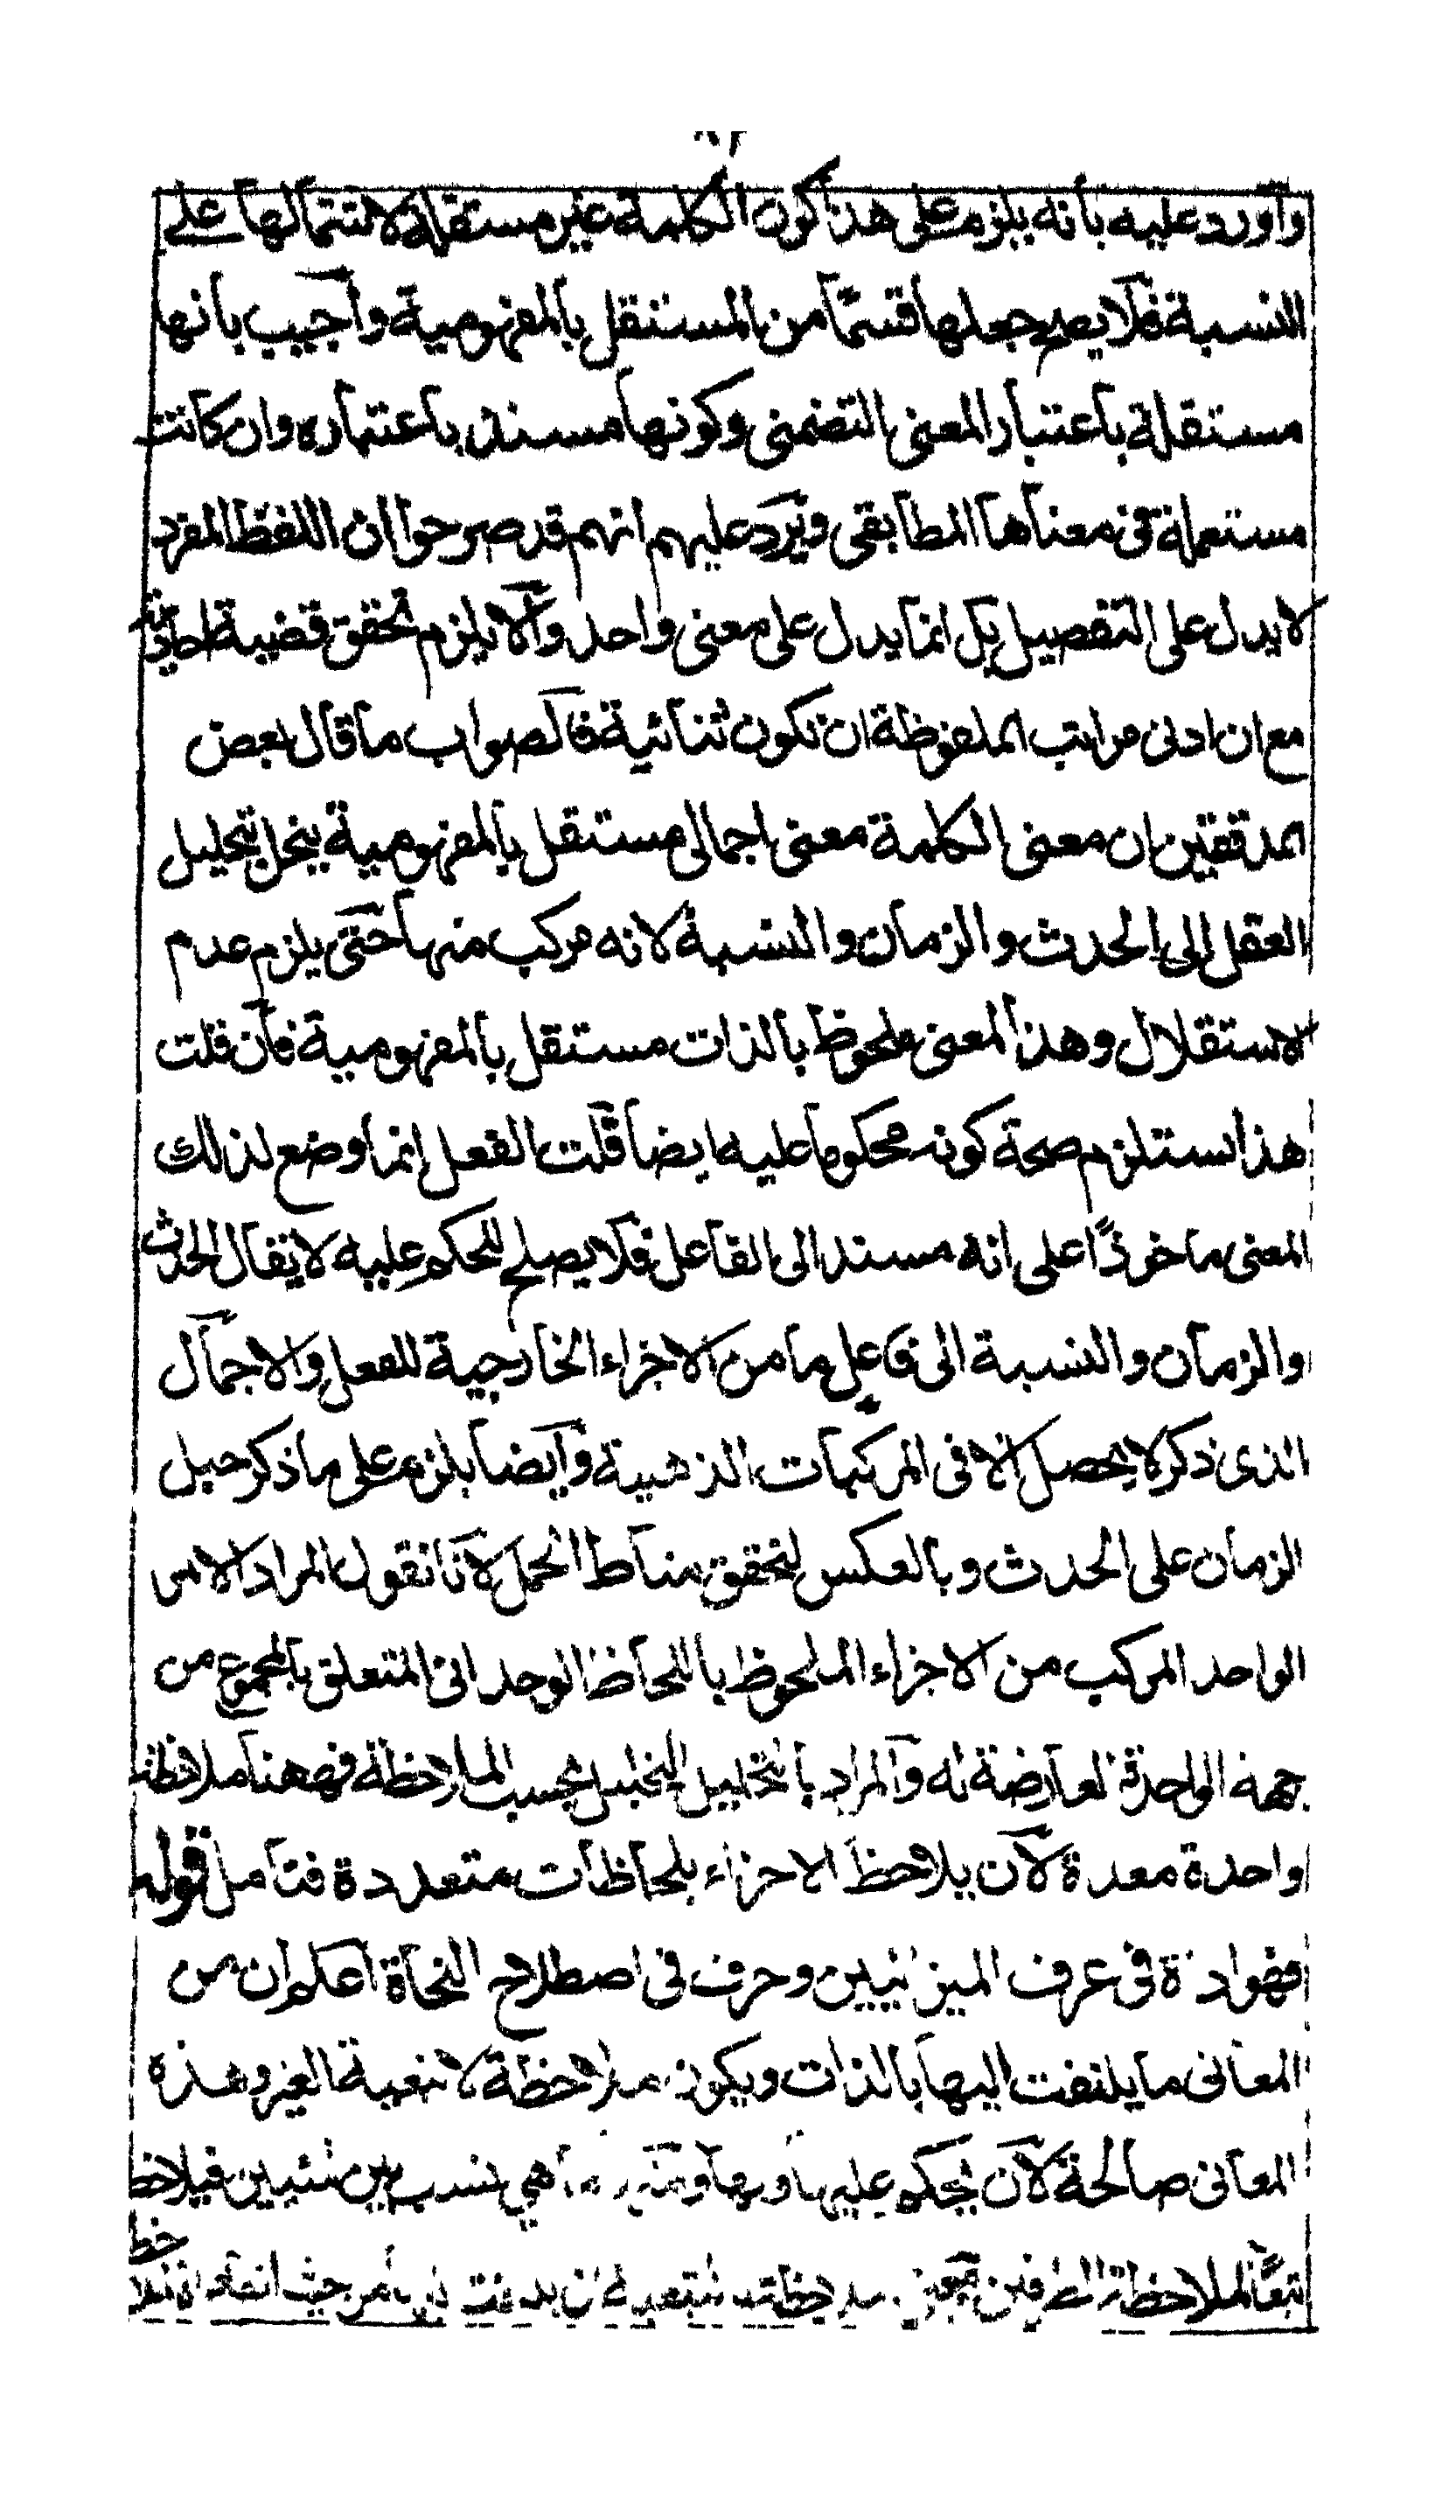 واورد عليه بانه يلزم على هذا كون الكلمة غير مستقلة لاشتمالها على
النسبة فلا يصح جعلها قسمًا من المستقل بالمفهومية واجيب بانها
مستقلة باعتبار المعنى التضمنى وكونها مسندة باعتباره وان كانت
مستعملة فى معناها المطابقى ويرد عليهم انهم قد صرحوا ان اللفظ المفرد
لا يدل على التفصيل بل انما يدل على معنى واحد والا يلزم تحقق قضية احادية
مع ان ادنى مراتب الملفوظة ان تكون ثنائية فالصواب ما قال بعض
المدققين ان معنى الكلمة معنى اجمالى مستقل بالمفهومية ينحل بتحليل
العقل الى الحدث والزمان والنسبة لا انه مركب منها حتى يلزم عدم
الاستقلال وهذا المعنى ملحوظ بالذات مستقل بالمفهومية فان قلت
هذا يستلزم صحة كونه محكوما عليه ايضا قلت الفعل انما وضع لذلك
المعنى ماخوذًا على انه مسند الى الفاعل فلا يصلح للحكم عليه لا يقال الحدث
والزمان والنسبة الى فاعل ما من الاجزاء الخارجية للفعل والاجمال
الذى ذكر لا يحصل الا فى المركبات الذهنية وايضا يلزم على ما ذكر حمل
الزمان على الحدث وبالعكس لتحقق مناط الحمل لانا نقول المراد الامر
الواحد المركب من الاجزاء الملحوظ باللحاظ الوحدانى المتعلق بالمجموع من
جهة الواحدة العارضة له والمراد بالتحليل التحليل بحسب الملاحظة فههنا ملاحظة
واحدة معدة لان يلاحظ الاجزاء بلحاظات متعددة فتامل قوله
فهو اداة فى عرف الميزانيين وحرف فى اصطلاح النحاة اعلم ان من
المعانى ما يلتفت اليها بالذات ويكون ملاحظة لا تبعية الغير وهذه
المعانى صالحة لان يحكم عليها وبها ومنها ما هي نسب بين شيئين فيلاحظ
تبعًا لملاحظة الطرفين بمعنى ملاحظته من حيث انها